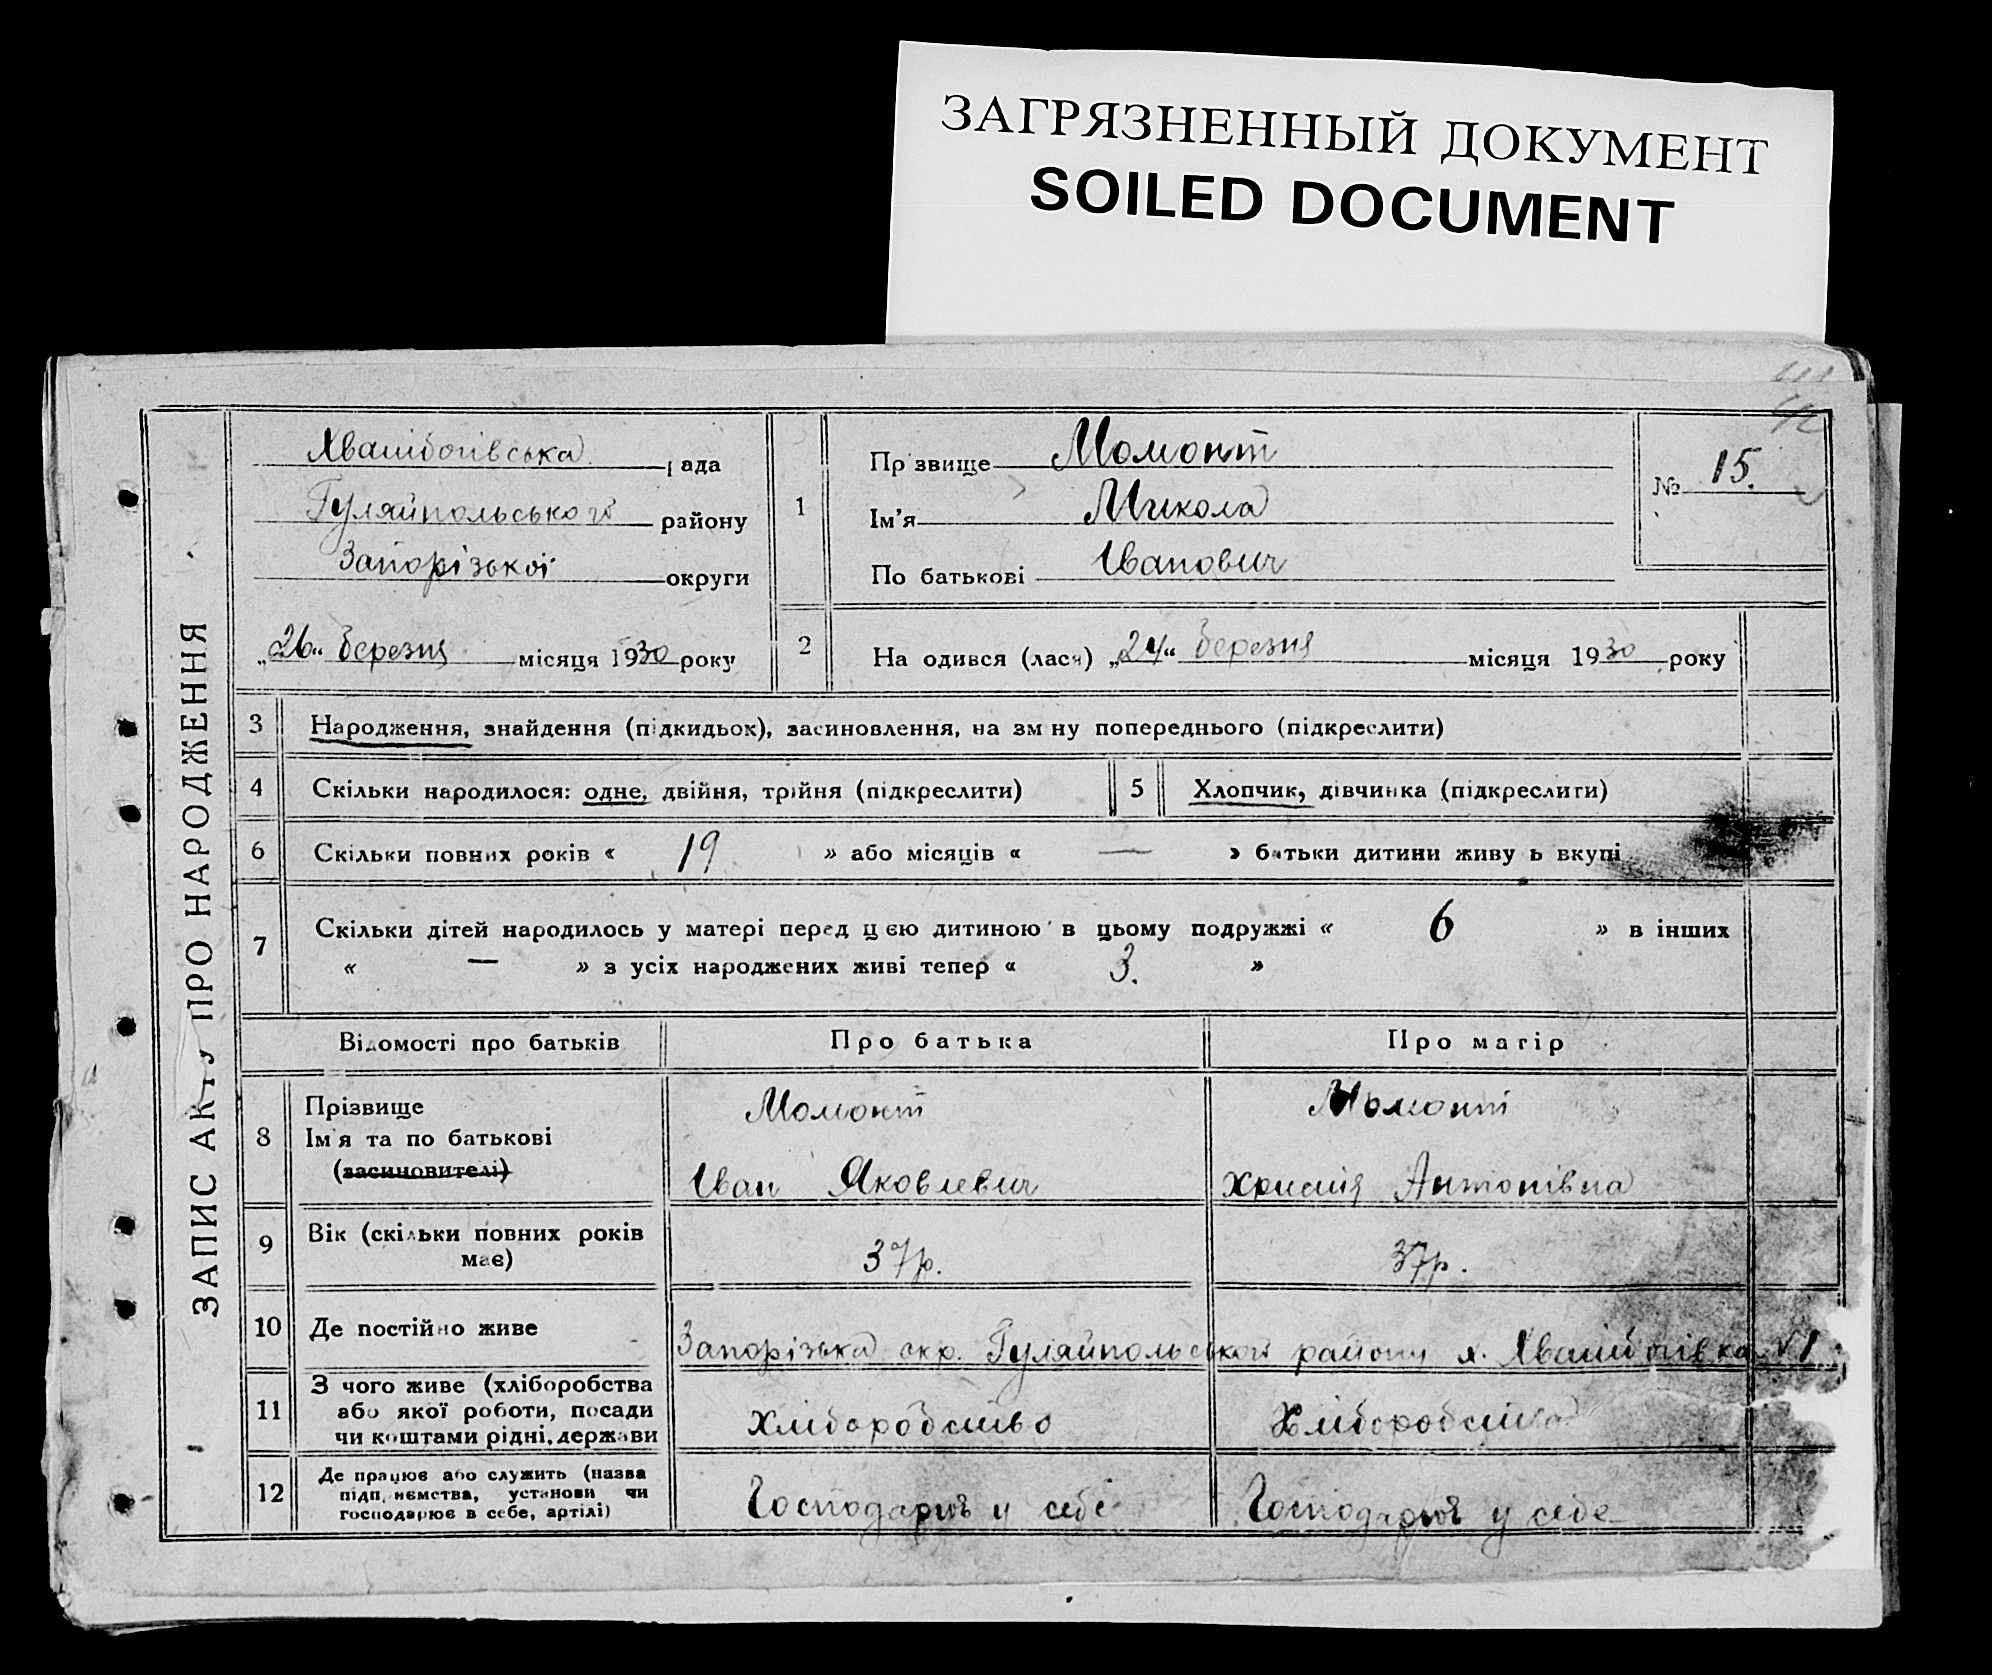 ЗАГРЯЗНЕННЫЙ ДОКУМЕНТ
SOILED DOCUMENT
42
ЗАПИС АКТУ ПРО НАРОДЖЕННЯ
Хвалібогівська рада
Гуляйпольського району
Запорізької округи
„26“ березня місяця 1930 року
1
Прізвище Момонт
Ім’я Микола
По батькові Іванович
№ 15.
2
На одився (лася) „24“ березня місяця 1930 року
3 Народження, знайдення (підкидьок), засиновлення, на зм ну попереднього (підкреслити)
4 Скільки народилося: одне, двійня, трійня (підкреслити)
5 Хлопчик, дівчинка (підкреслити)
6 Скільки повних років « 19 » або місяців « — » батьки дитини живу ь вкупі
7 Скільки дітей народилось у матері перед цією дитиною в цьому подружжі « 6 » в інших
« — » з усіх народжених живі тепер « 3. »
Відомості про батьків Про батька Про матір
8 Прізвище
Ім'я та по батькові
(засиновителі)
Момонт
Іван Яковлевич
Момонт
Христя Антонівна
9 Вік (скільки повних років
має)
37р.
37р.
10 Де постійно живе
Запорізька окр. Гуляйпольського району х. Хвалібогівка №1
11 З чого живе (хліборобства
або якої роботи, посади
чи коштами рідні, держави
Хліборобство
Хліборобства
12 Де працює або служить (назва
підп, иємства, установи чи
господарює в себе, артілі)
Господарює у себе
Господарює у себе